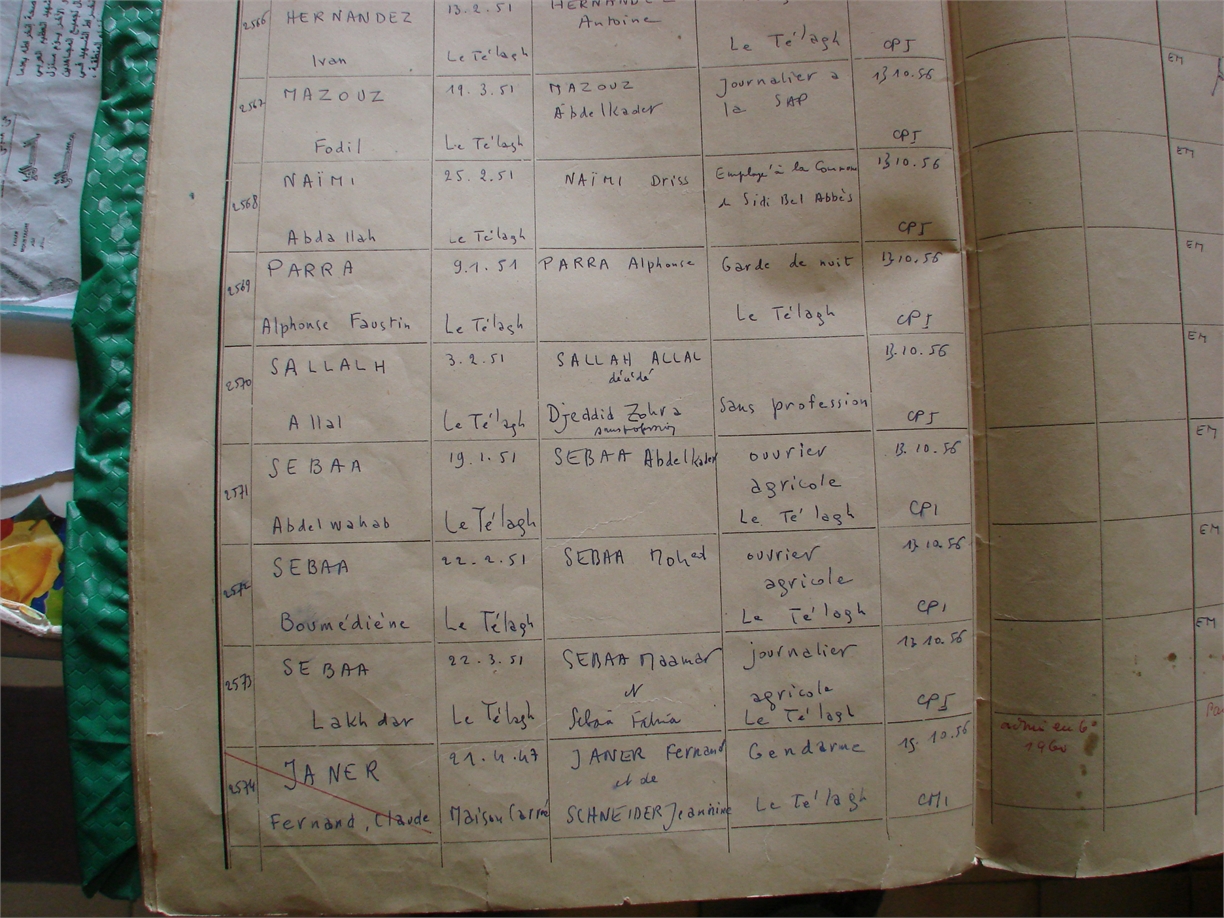 2566 HERNANDEZ 13.2.51 HERNANDEZ
Antoine
Ivan Le Télagh Le Télagh CPI
2567 MAZOUZ 19.3.51 MAZOUZ Journalier a 13.10.56 EM
Abdelkader la SAP
Fodil Le Télagh CPI
2568 NAÏMI 25.2.51 NAÏMI Driss Employé à la Commune 13.10.56 EM
d Sidi Bel Abbès
Abdallah Le Télagh CPI
2569 PARRA 9.1.51 PARRA Alphonse Garde de nuit 13.10.56 EM
Alphonse Faustin Le Télagh Le Télagh CPI
2570 SALLALH 3.2.51 SALLAH ALLAL 13.10.56 EM
décédé
Allal Le Télagh Djeddid Zohra Sans profession CPI
2571 SEBAA 19.1.51 SEBAA Abdelkader ouvrier 13.10.56 EM
agricole
Abdelwahab Le Télagh Le Télagh CP1
2572 SEBAA 22.2.51 SEBAA Mohed ouvrier 13.10.56 EM
agricole
Boumédiène Le Télagh Le Télagh CP1
2573 SEBAA 22.3.51 SEBAA Maamar journalier 13.10.56 EM
agricole
Lakhdar Le Télagh Le Télagh CPI
2574 JANER 21.4.47 JANER Fernand Gendarme 15.10.56 admis en 6°
et de 1960
Fernand, Claude Maison Carrée SCHNEIDER Jeannine Le Télagh CM1